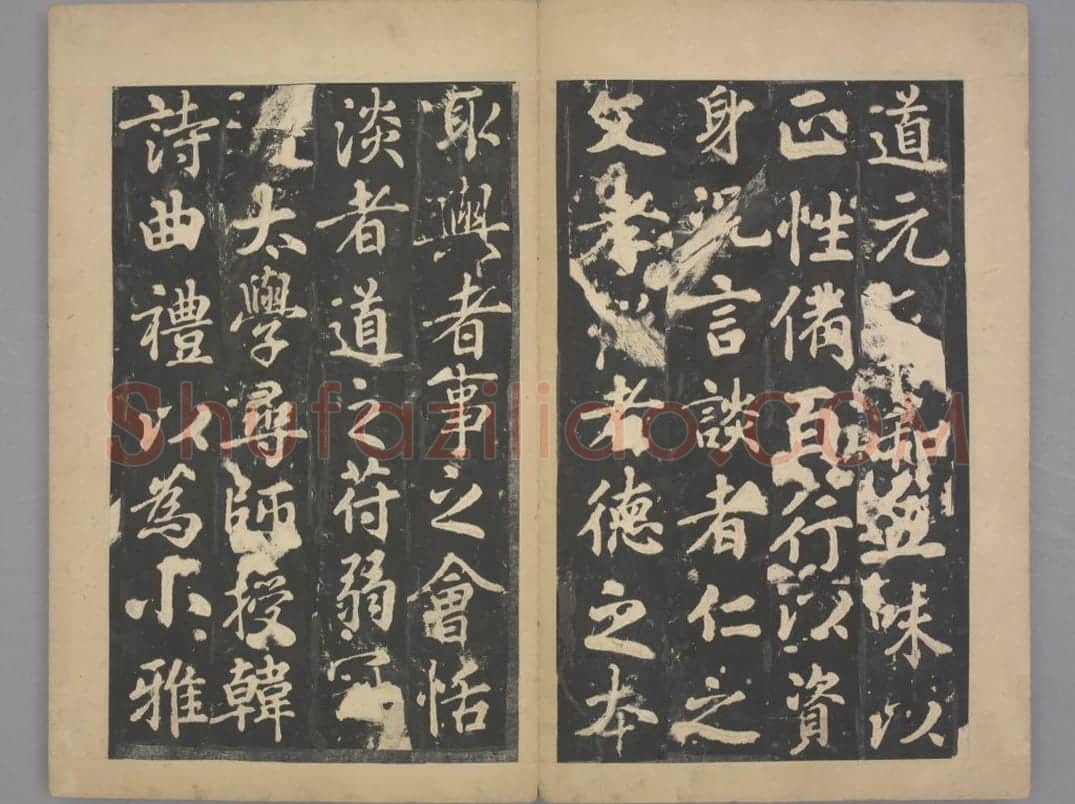 道元和無味以
正性備百行以資
身況言談者仁之
文孝者德之本
取與者事之會恬
淡者道之苻弱
太學尋師授韓
詩曲禮以為小雅
Shufaziliao.COM